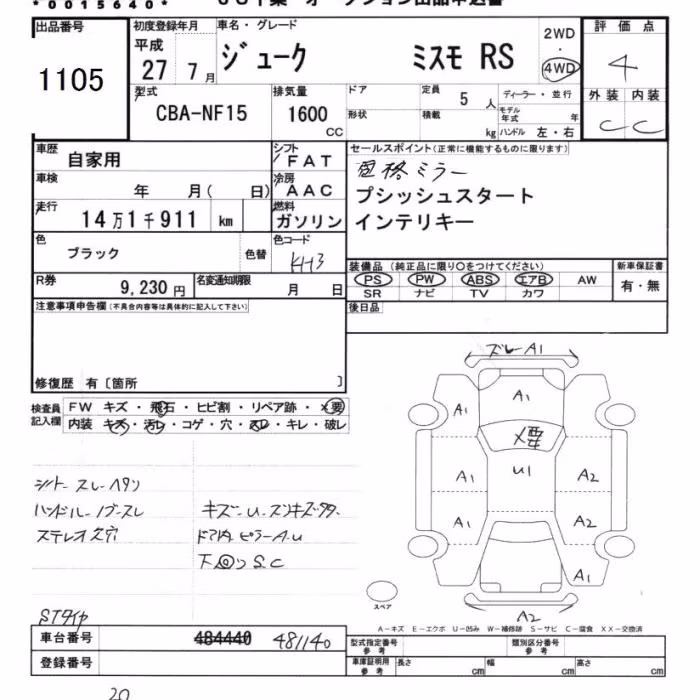 *0015640*
出品番号 1105
初度登録年月 平成 27 7月
車名・グレード ジューク ミスモ RS
2WD・4WD
評価点 4
外装 内装
C C
型式 CBA-NF15
排気量 1600 CC
ドア 定員 5 人
形状 積載 kg
ディーラー・並行
モデル年式 年
ハンドル 左・右
車歴 自家用
シフト FAT
車検 年 月( 日)
冷房 AAC
走行 14万1千911 km
燃料 ガソリン
色 ブラック 色替
色コード KH3
R券 9,230円
名変通知期限 月 日
セールスポイント(正常に機能するものに限ります)
ミラー
プシッシュスタート
インテリキー
装備品(純正品に限り〇をつけてください)
PS PW ABS エアB AW
SR ナビ TV カワ
新車保証書 有・無
後日品
注意事項申告欄(不具合内容等は具体的に記入して下さい)
修復歴 有〔箇所 〕
検査員記入欄
FW キズ・飛石・ヒビ割・リペア跡・×要
内装 キズ・汚レ・コゲ・穴・スレ・キレ・破レ
シート スレ ヘタリ
ハンドル ノブ スレ
ステレオ欠穴
ドア内 ピラー A.U
S.C
STタイヤ
ズレ A1
A1
A1
×要
A1
U1
A2
A1
A2
A1
A2
スペア
A-キズ E-エクボ U-凹み W-補修跡 S-サビ C-腐食 XX-交換済
車台番号 484440 481140
登録番号
型式指定番号 参考
類別区分番号 参考
車庫証明用 参考 長さ cm 幅 cm 高さ cm
20